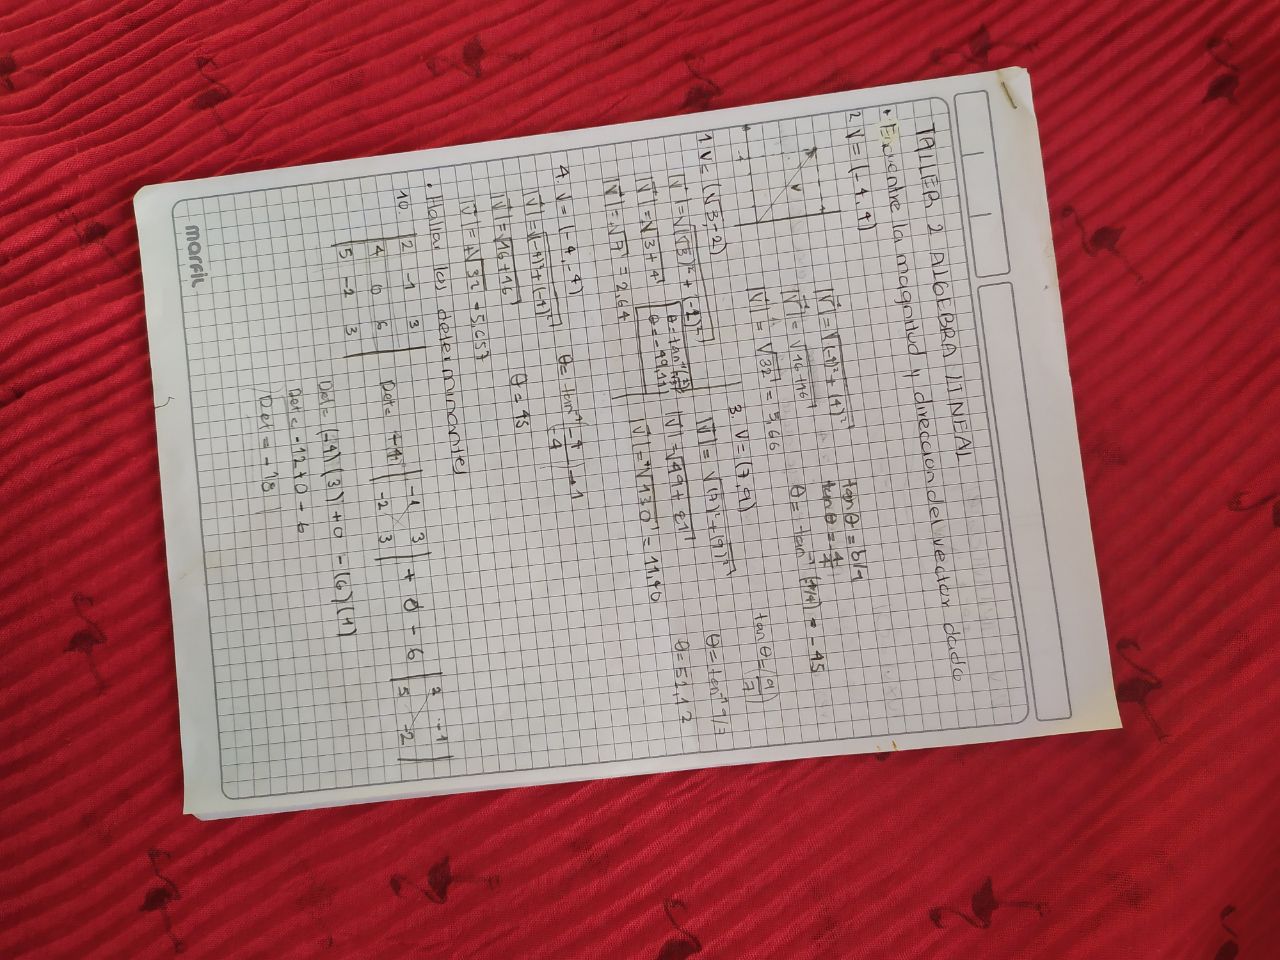 TALLER 2 ALGEBRA LINEAL
• Encuentre la magnitud y direccion del vector dado
2 V = (-4, 4)
|V| = √(-4)² + (4)²
|V| = √16+16
|V| = √32 = 5,66
tan θ = b/a
tan θ = 4/4
θ = tan⁻¹ (4/4) = -45
V
1 V = (√3, -2)
|V| = √(√3)² + (-2)²
|V| = √3 + 4
|V| = √7 = 2,64
θ = -49,11
3. V = (7, 9)
|V| = √(7)² + (9)²
|V| = √49 + 81
|V| = √130 = 11,40
tan θ = (9/7)
θ = tan⁻¹ 9/7
θ = 51,12
4. V = (-4, -4)
|V| = √(-4)² + (-4)²
|V| = √16 + 16
|V| = √32 = 5,657
θ = tan⁻¹ -4/-4 = 1
θ = 45
• Hallar los determinantes
10.
2 -1 3
4 0 6
5 -2 3
Det = -4 | -1 3 | + 0 - 6 | 2 -1 |
| -2 3 | | 5 -2 |
Det = (-4) (3) + 0 - (6) (1)
Det = -12 + 0 - 6
Det = -18
marfil